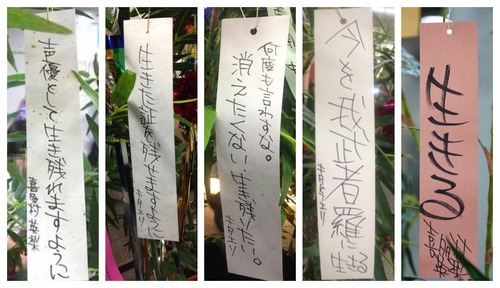 声優として生き残れますように
喜多村英梨
生きた証を残せますように
キタエリ
何度も言わすな。
消えたくない生き残りたい。
キタエリ
今を我武者羅に生きる
キタエリ